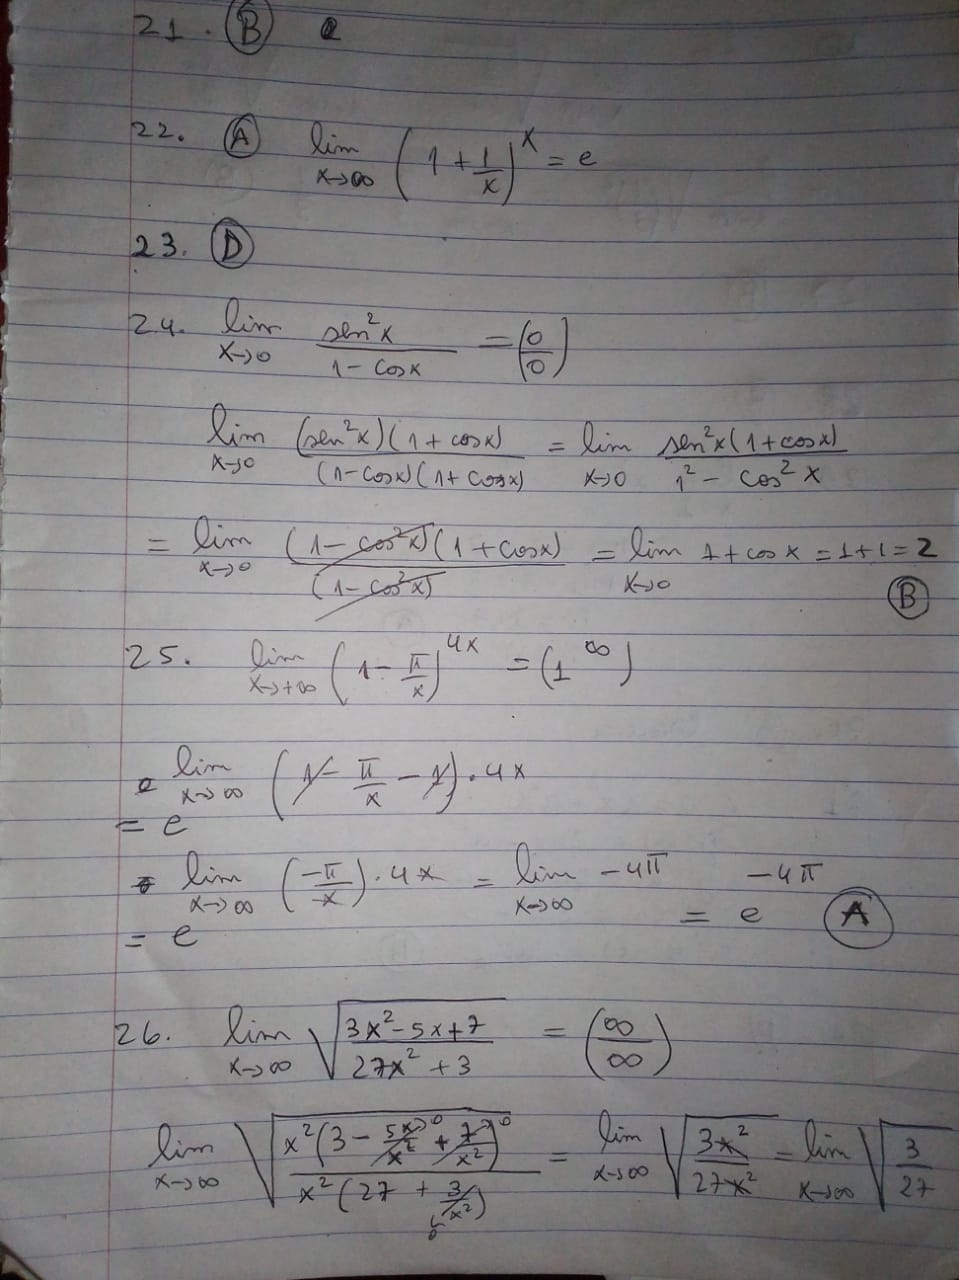 21. (B)
22. (A) lim x→∞ (1 + 1/x)^x = e
23. (D)
24. lim x→0 sen²x / (1 - cosx) = (0/0)
lim x→0 (sen²x)(1 + cosx) / (1 - cosx)(1 + cosx) = lim x→0 sen²x(1 + cosx) / (1² - cos²x)
= lim x→0 (1 - cos²x)(1 + cosx) / (1 - cos²x) = lim x→0 1 + cosx = 1+1 = 2
(B)
25. lim x→+∞ (1 - π/x)^4x = (1^∞)
lim x→∞ (1 - π/x - 1) . 4x
= e
lim x→∞ (-π/x) . 4x = lim x→∞ -4π = e^-4π (A)
= e
26. lim x→∞ √((3x² - 5x + 7) / (27x² + 3)) = (∞/∞)
lim x→∞ √(x²(3 - 5x/x² →0 + 7/x² →0) / x²(27 + 3/x²)) = lim x→∞ √(3x²/27x²) = lim x→∞ √(3/27)